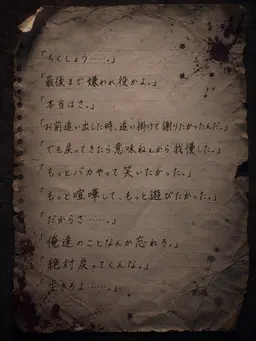 「ちくしょう……。」
「最後まで嫌われ役かよ。」
「本当はさ。」
「お前追い出した時、追い掛けて謝りたかったんだ。」
「でも戻ってきたら意味ねぇから我慢した。」
「もっとバカやって笑いたかった。」
「もっと喧嘩して、もっと遊びたかった。」
「だからさ……。」
「俺達のことなんか忘れろ。」
「絶対戻ってくんな。」
「生きろよ……。」